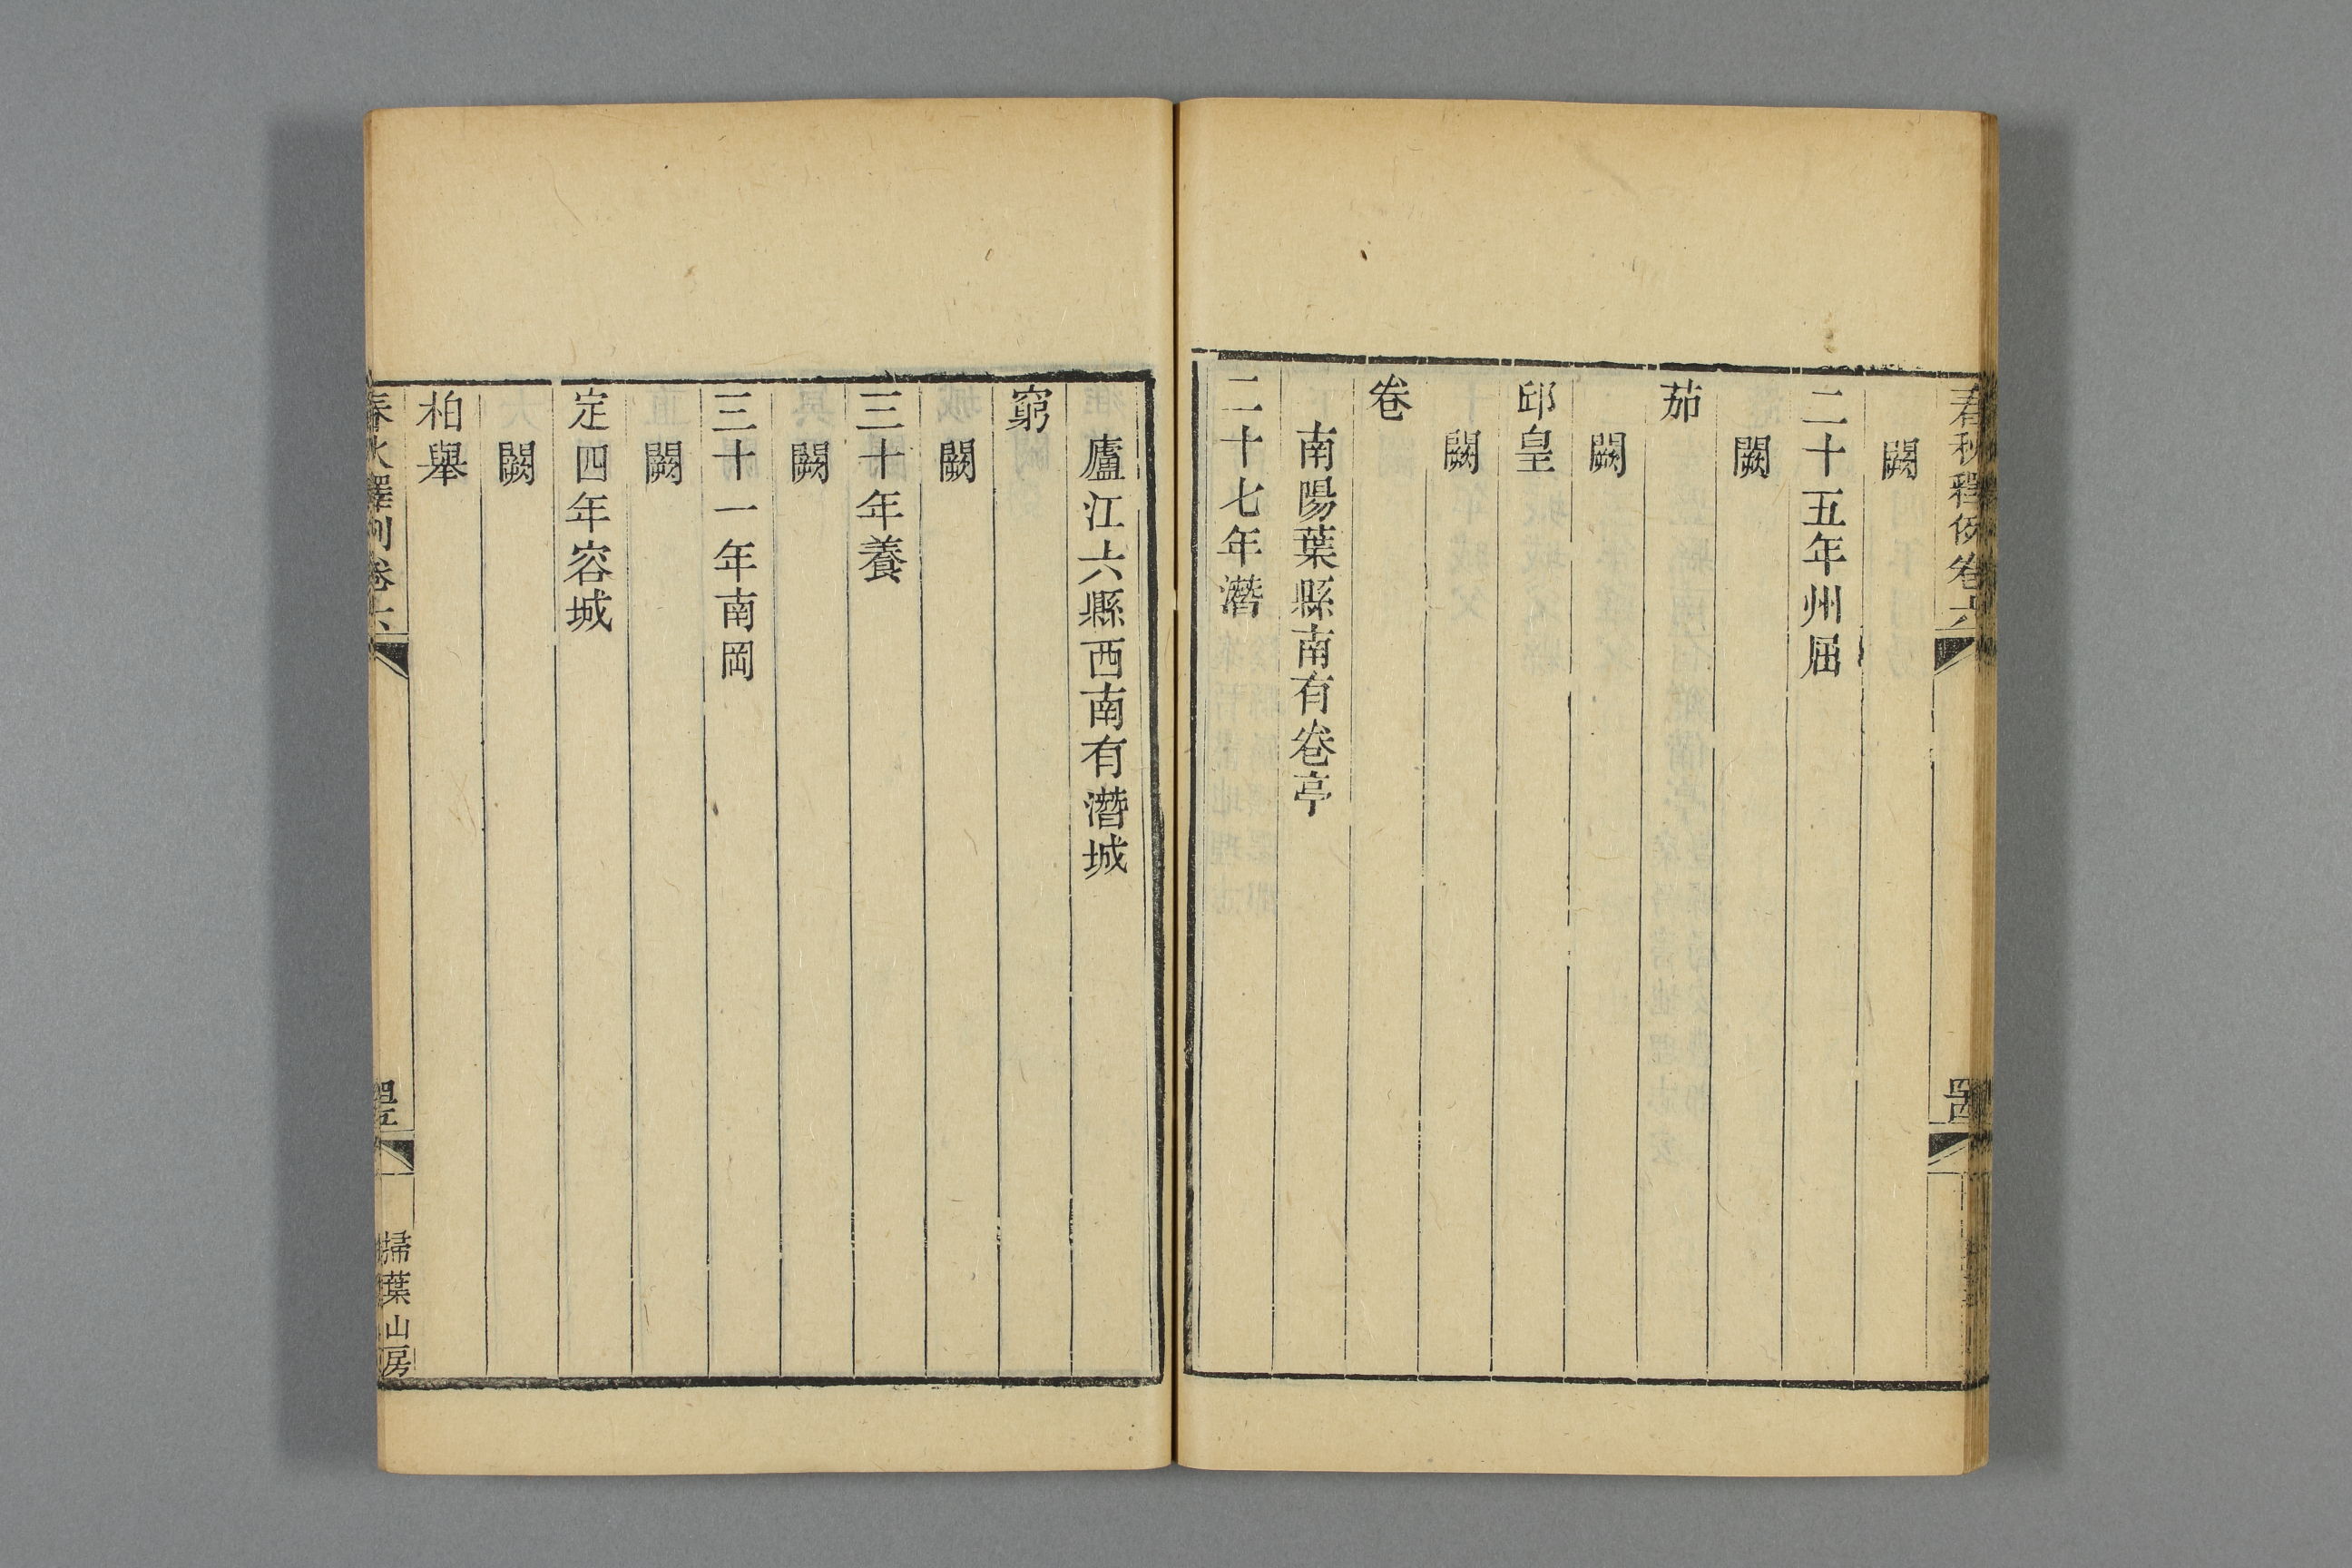 春秋釋例卷六
闕
二十五年州屈
闕
茄
闕
邱皇
闕
卷
南陽葉縣南有卷亭
二十七年潛
廬江六縣西南有潛城
窮
闕
三十年養
闕
三十一年南岡
闕
定四年容城
闕
柏舉
春秋釋例卷六
掃葉山房